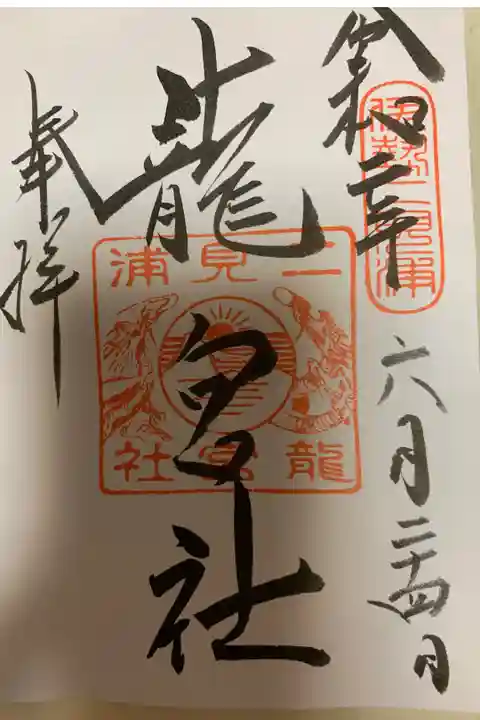 令和二年六月二十四日
伊勢二見浦
龍宮社
二見浦
龍宮社
奉拝